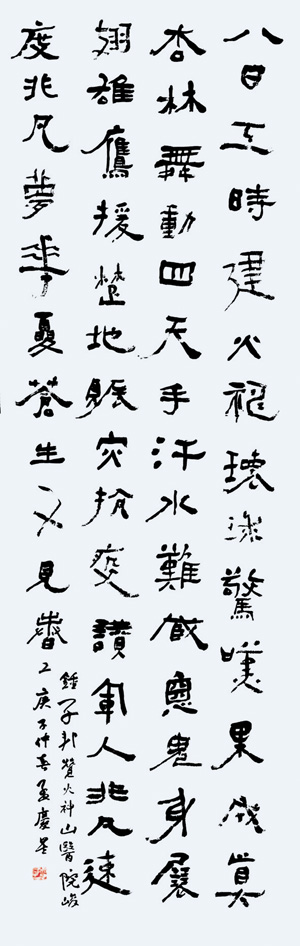 八日工時建火神環球驚嘆果成真
杏林舞動回天手汗水難藏惡鬼身展
翅雄鷹援楚地賑灾抗疫讚軍人非凡速
度非凡夢華夏蒼生又見春
鍾子邦贊火神山醫院竣
工庚子仲春孟慶星